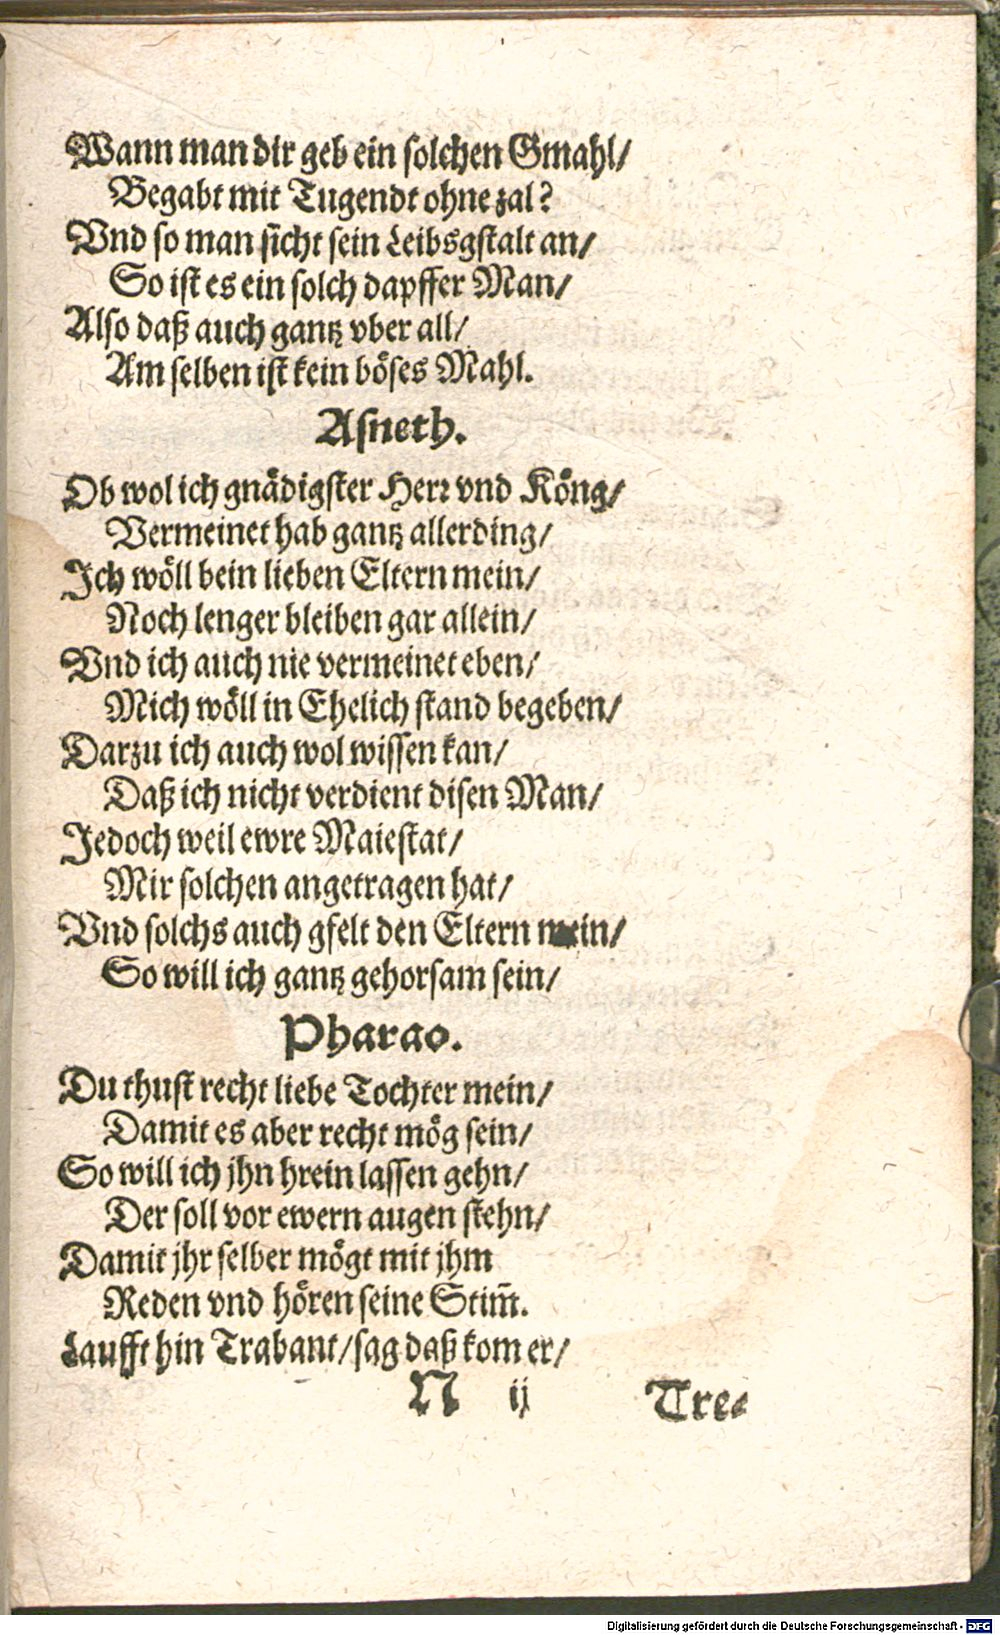 Wann man dir geb ein solchen Gmahl/
Begabt mit Tugendt ohne zal?
Vnd so man sicht sein Leibsgstalt an/
So ist es ein solch dapffer Man/
Also daß auch gantz vber all/
Am selben ist kein böses Mahl.
Asneth.
Ob wol ich gnädigster Herr vnd Köng/
Vermeinet hab gantz allerding/
Ich wöll bein lieben Eltern mein/
Noch lenger bleiben gar allein/
Vnd ich auch nie vermeinet eben/
Mich wöll in Ehelich stand begeben/
Darzu ich auch wol wissen kan/
Daß ich nicht verdient disen Man/
Jedoch weil ewre Maiestat/
Mir solchen angetragen hat/
Vnd solchs auch gfelt den Eltern mein/
So will ich gantz gehorsam sein/
Pharao.
Du thust recht liebe Tochter mein/
Damit es aber recht mög sein/
So will ich jhn hrein lassen gehn/
Der soll vor ewern augen stehn/
Damit jhr selber mögt mit jhm
Reden vnd hören seine Stim̃.
Laufft hin Trabant/sag daß kom er/
N ij Tre-
Digitalisierung gefördert durch die Deutsche Forschungsgemeinschaft - DFG